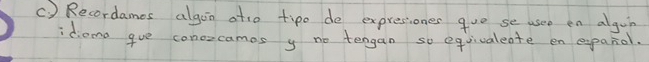 c) Recordames algún otro tipo de expresiones que se usen en algún
idioma que conozcamos y no tengan su equivalente en español.